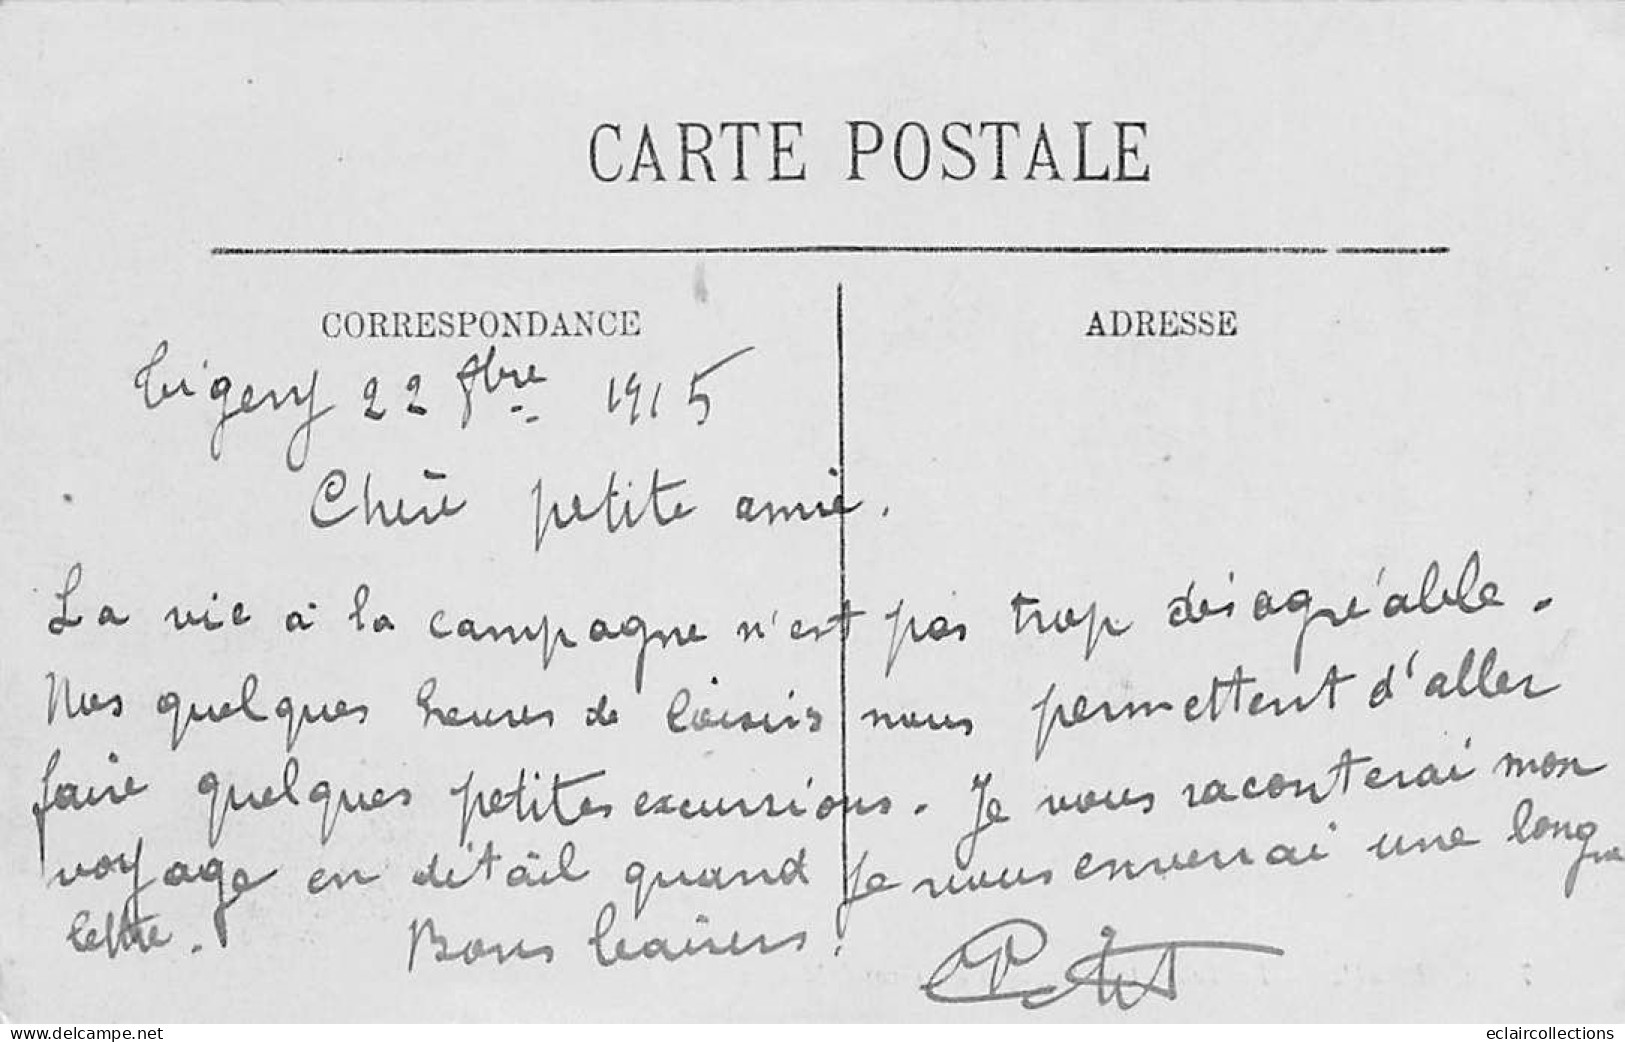 CARTE POSTALE
CORRESPONDANCE
ADRESSE
Tigery 22 9bre 1915
Chère petite amie.
La vie à la campagne n'est pas trop désagréable.
Nos quelques heures de loisirs nous permettent d'aller
faire quelques petites excursions. Je vous raconterai mon
voyage en détail quand je vous enverrai une longue
lettre. Bons baisers.
www.delcampe.net
eclaircollections